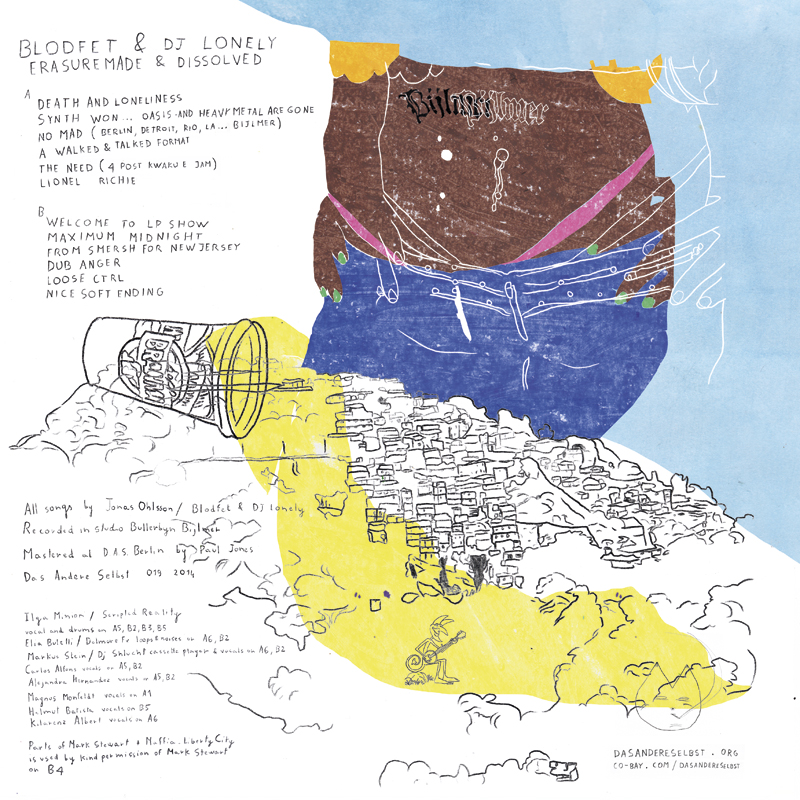 BLODFET & DJ LONELY
ERASUREMADE & DISSOLVED
A
DEATH AND LONELINESS
SYNTH WON... OASIS AND HEAVY METAL ARE GONE
NO MAD (BERLIN, DETROIT, RIO, LA... BIJLMER)
A WALKED & TALKED FORMAT
THE NEED (4 POST KWAKU E JAM)
LIONEL RICHIE
B
WELCOME TO LP SHOW
MAXIMUM MIDNIGHT
FROM SMERSH FOR NEW JERSEY
DUB ANGER
LOOSE CTRL
NICE SOFT ENDING
Bijlmer
All songs by Jonas Ohlsson/ Blodfet & DJ Lonely
Recorded in studio Bullerbyn Bijlmer
Mastered at D.A.S. Berlin by Paul Jones
Das Andere Selbst 019 2014
Ilya Minion / Scripted Reality
vocal and drums on A5, B2, B3, B5
loops & noises on A6, B2
cassette player & vocals on A6, B2
vocals on A5, B2
Alejandra Hernandez vocals on A5, B2
Magnus Monfeldt vocals on A1
Helmut Batista vocals on B5
Albert vocals on A6
Parts of Mark Stewart + Maffia - Liberty City
is used by kind permission of Mark Stewart
on B4
DASANDERESELBST . ORG
CO-BAY . COM / DASANDERESELBST